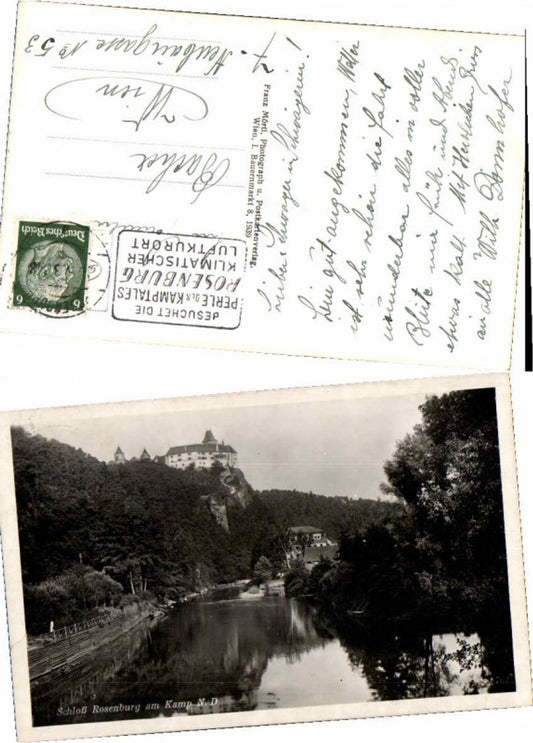 Liebe Schwiegerin Schwägerin!
Bin gut angekommen, Wetter
ist sehr schön die Fahrt
wunderbar alles in voller
Blüte nur früh und Abend
etwas kalt. Mit Herzlichen Gruss
an alle Wilh. Dornhofer
Franz Mörtl, Photograph u. Postkartenverlag,
Wien, I. Bauernmarkt 8, 1939
Wien
Neubaugasse No 53
Deutsches Reich
6 6
BESUCHET DIE
PERLE DES KAMPTALES
ROSENBURG
KLIMATISCHER
LUFTKURORT
Schloß Rosenburg am Kamp N. D.